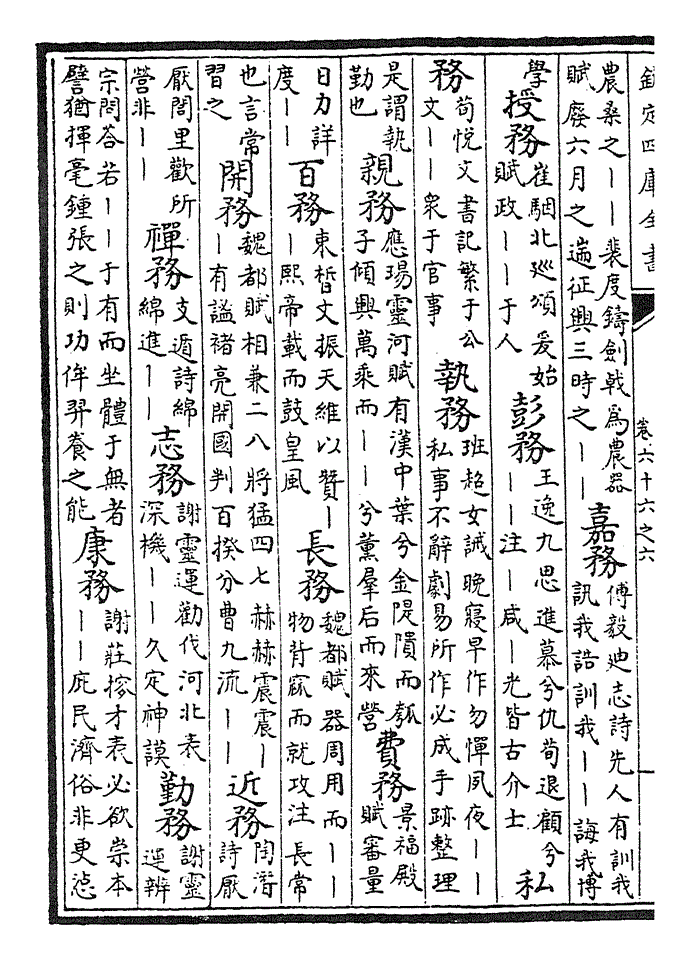 欽定四庫全書
卷六十六之六
一
農桑之——裴度鑄劍戟爲農器
賦廢六月之遄征興三時之——
嘉務
傅毅廸志詩先人有訓我
訊我誥訓我——誨我博
學
授務
崔駰北巡頌爰始
賦政——于人
彭務
王逸九思進慕兮仇荀退顧兮
——注—咸—光皆古介士
私
務
荀悅文書記繁于公
文——衆于官事
執務
班超女誡晚寢早作勿憚夙夜——
私事不辭劇易所作必成手跡整理
是謂執
勤也
親務
應瑒靈河賦有漢中葉兮金隄隤而瓠
子傾興萬乘而——兮董羣后而來營
費務
景福殿
賦審量
日力詳
度——
百務
束晳文振天維以贊—
—熙帝載而鼓皇風
長務
魏都賦器周用而——
物背窳而就攻注長常
也言常
習之
開務
魏都賦相兼二八將猛四七赫赫震震—
—有謐褚亮開國判百揆分曹九流——
近務
陶潛
詩厭
厭閭里歡所
營非——
禪務
支遁詩綿
綿進——
志務
謝靈運勸伐河北表
深機——久定神謨
勤務
謝靈
運辨
宗問荅若——于有而坐體于無者
譬猶揮毫鍾張之則功侔羿養之能
康務
謝莊搜才表必欲崇本
——庶民濟俗非更恣